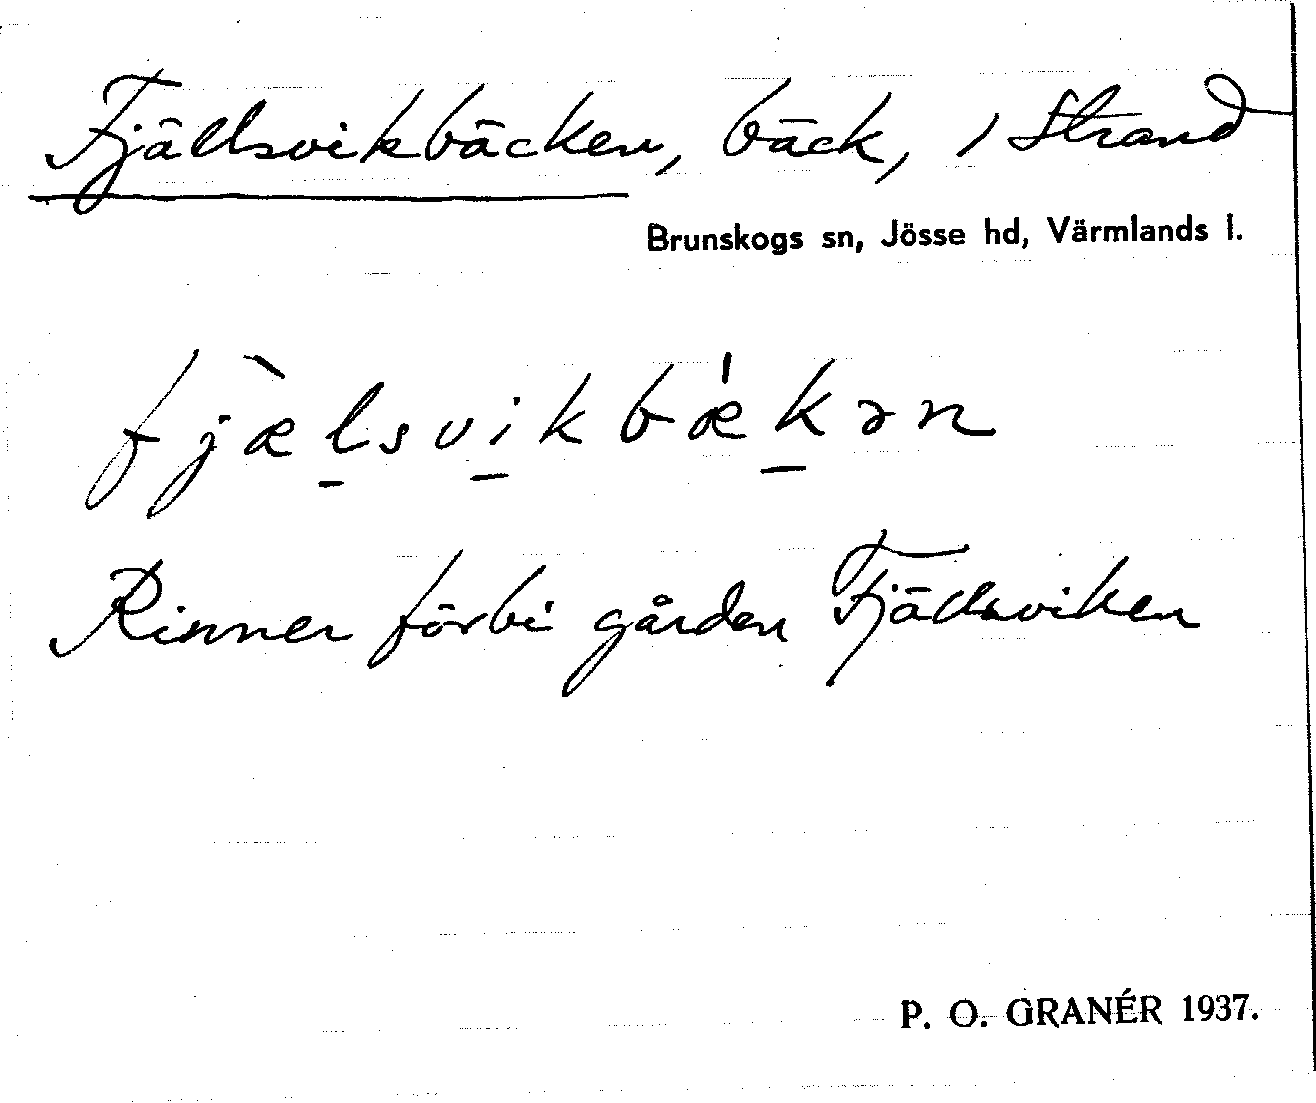 Fjällsvikbäcken, bäck, / Strand
Brunskogs sn, Jösse hd, Värmlands l.
fjæ̀l̠svi̠kbæ̍k̠ən
Rinner förbi gården Fjällsviken
P. O. GRANÉR 1937.